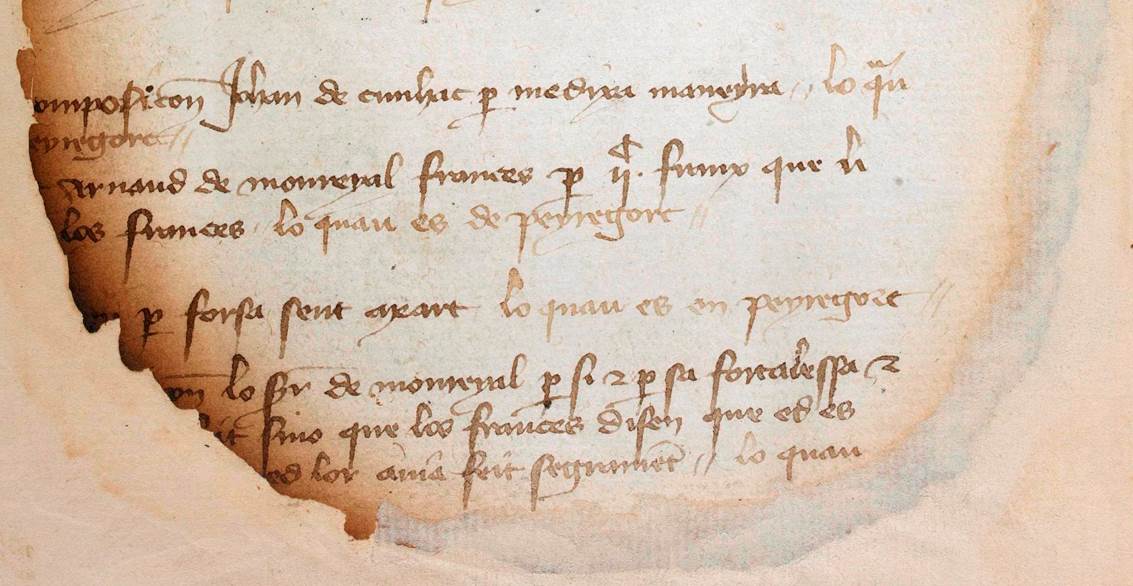 omposicon Johan de cunhac p medixa maneyra lo qau
eyregorc
Arnaud de monreyal frances p ii c. franx que li
los frances lo quau es de peyregorc
p forsa sent axart lo quau es en peyregorc
lo Sr de monreyal p si 2 p sa fortalessa 2
sino que los frances disen que ed es
ed lor aiua feit segrament lo quau